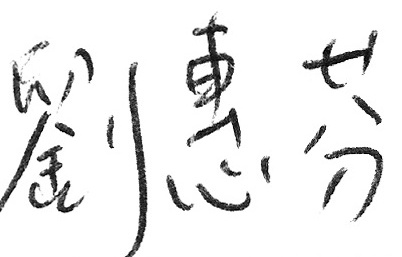 劉惠芬